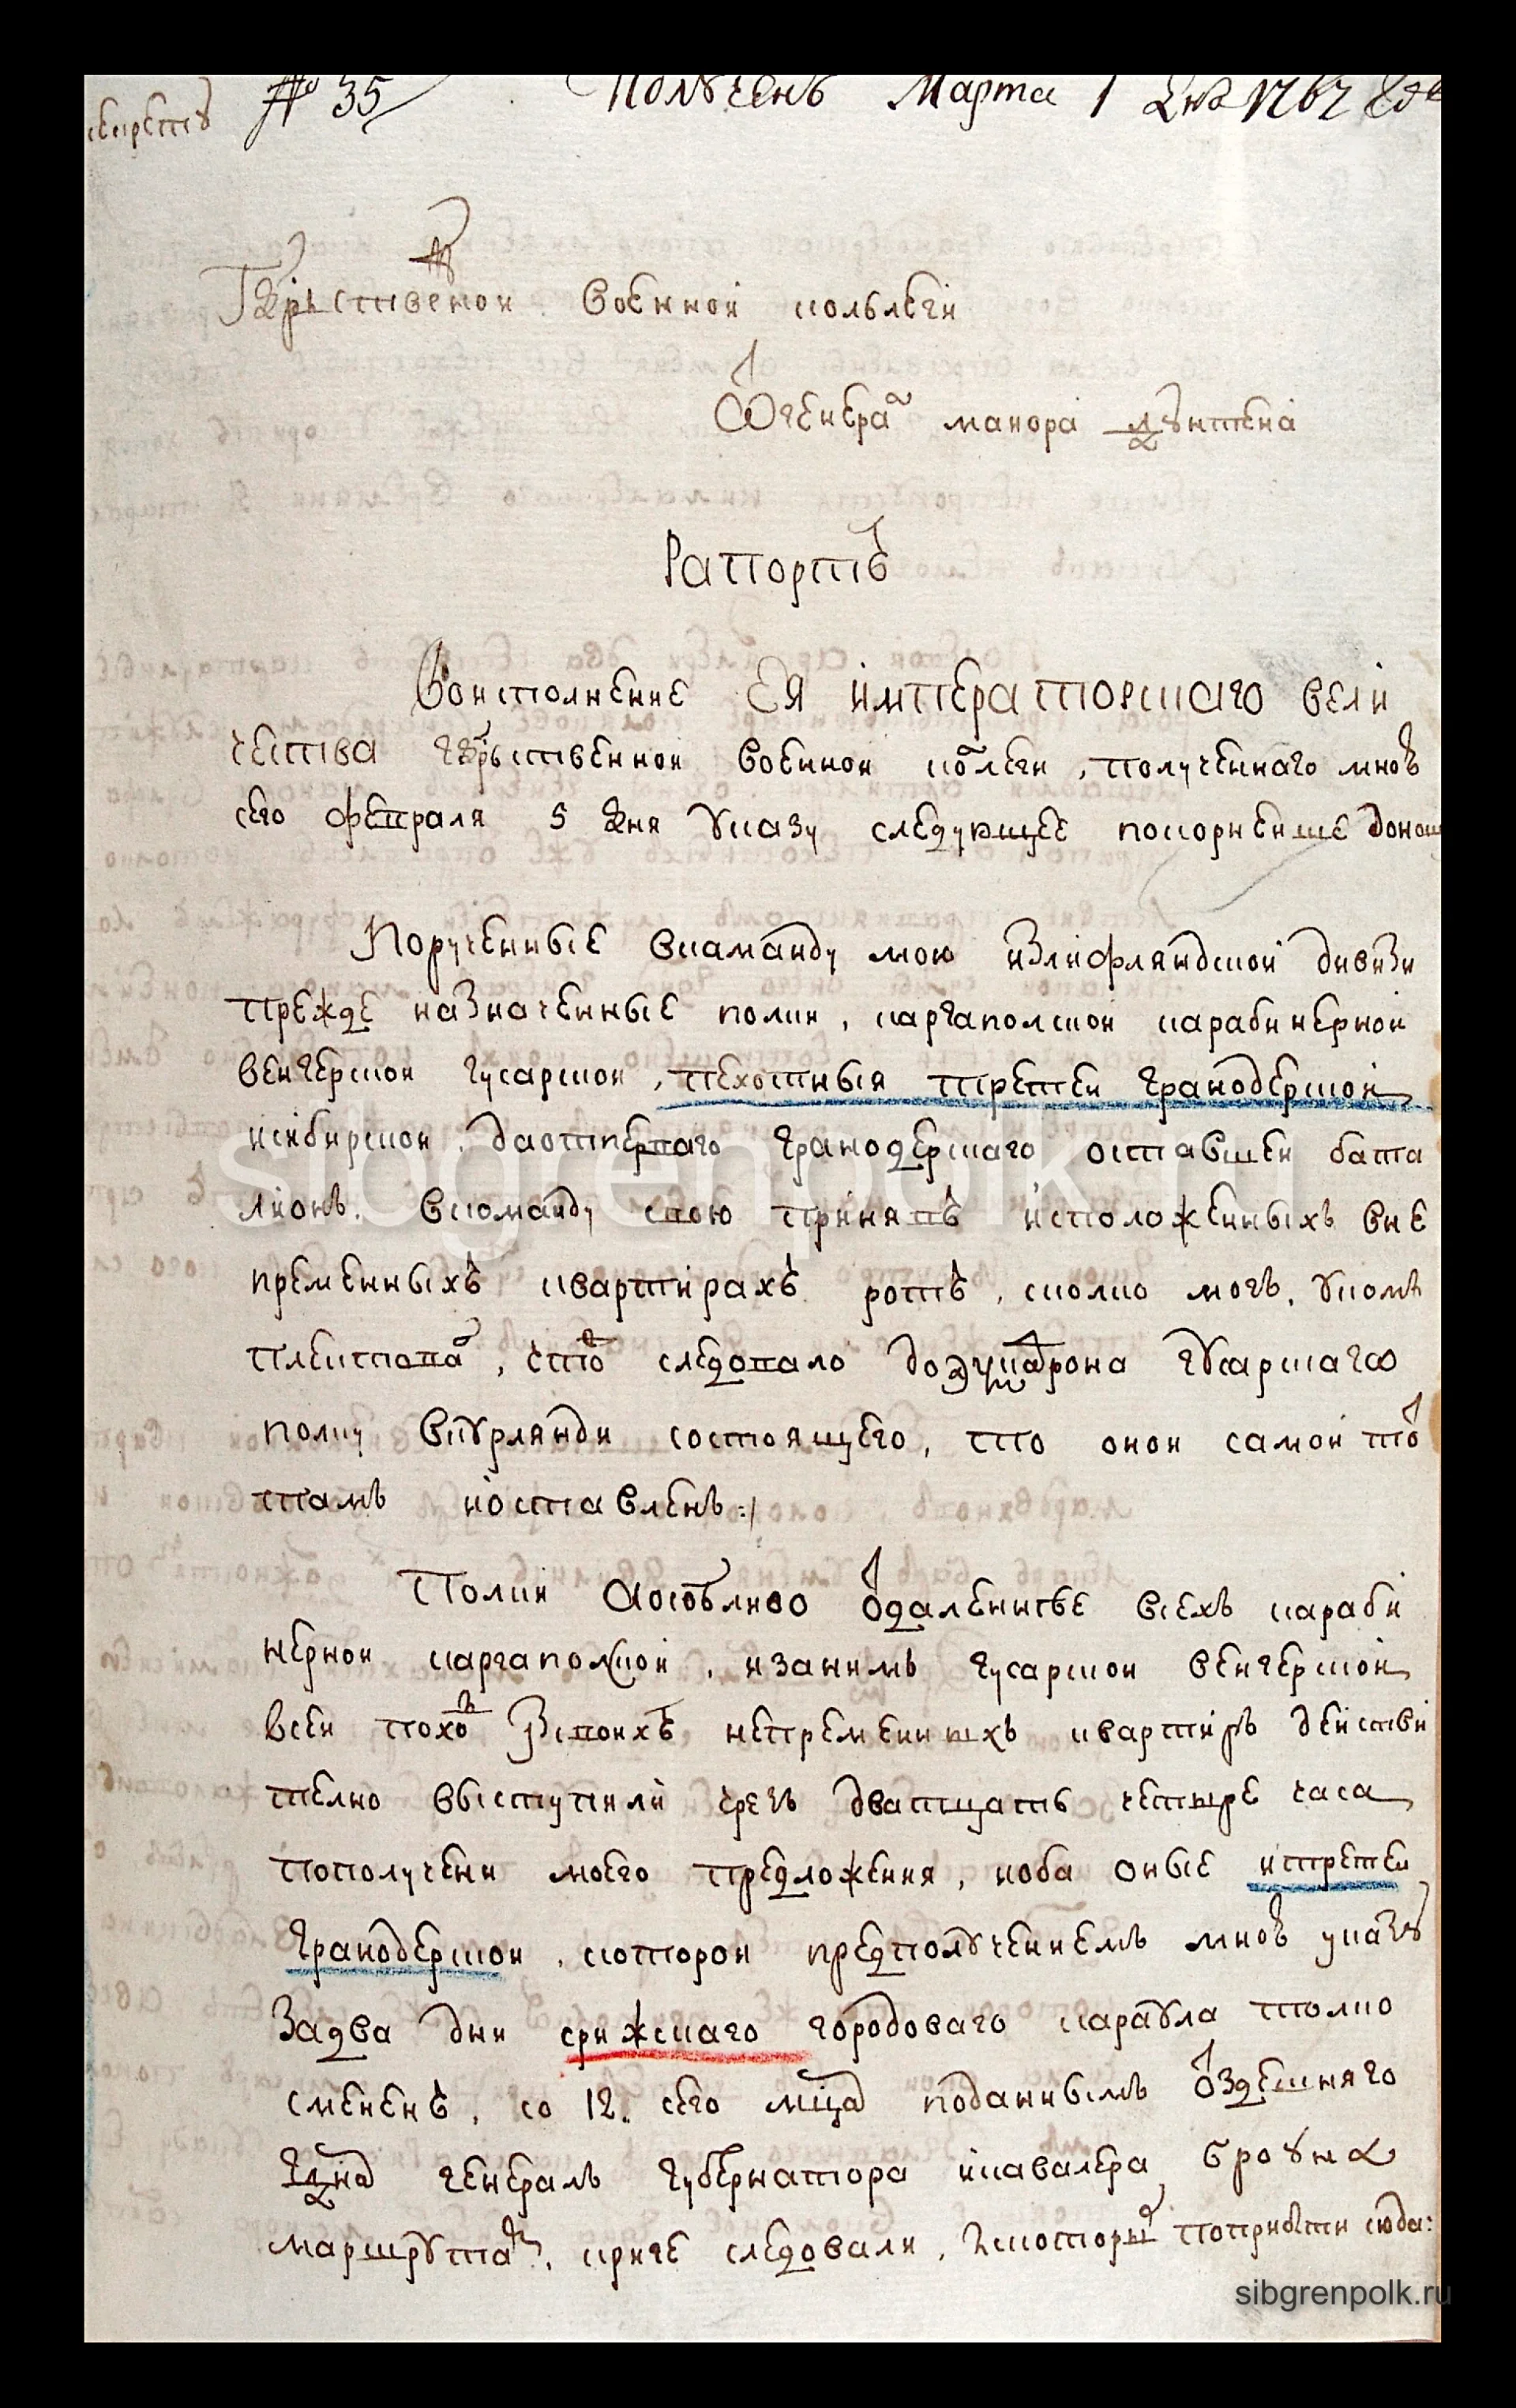 секрету № 35 Полученъ Марта 1 дня 1767 году
Гдрьственой Военной колълегіи
Ѿ генерал маиора
Рапортъ
Во исполнение Ея императорскаго вели
чества гдрьственной Военной колегии, полученнаго мною
сего февраля 5 дня Указу следующее покорнейше доношу
Порученные в каманду мою из лифляндской дивизи
прежде назначенные полки, каргаполской карабинерной
венгерской гусарской, пехотныя третей гранодерской
и сибирской, да от перваго гранодерскаго оставшей бата
лионъ. В команду свою принявъ и положенныхъ в не
пременныхъ квартирахъ ротъ, сколко могъ, Укомъ
плектовал, что следовало до эскадрона гусарскаго
полку в Курлянди состоящего, то оной самой
тамъ и оставленъ :/
Полки а особливо отдаленные всехъ караби
нерной каргаполской, и за нимъ гусарской венгерской
в сей поход из своихъ непременныхъ квартиръ действи
телно выступили чрезъ дватцать четыре часа
по получени моего предложения, и оба оные и третей
гранодерской, которой пред получениемъ мною указу
за два дни с рижскаго городоваго караула толко
смененъ, со 12. сего мца по даннымъ от здешняго
гдна генералъ губернатора и кавалера броуна
маршрутам, к риге следовали, ис которых по прибыти сюда:
sibgrenpolk.ru
sibgrenpolk.ru